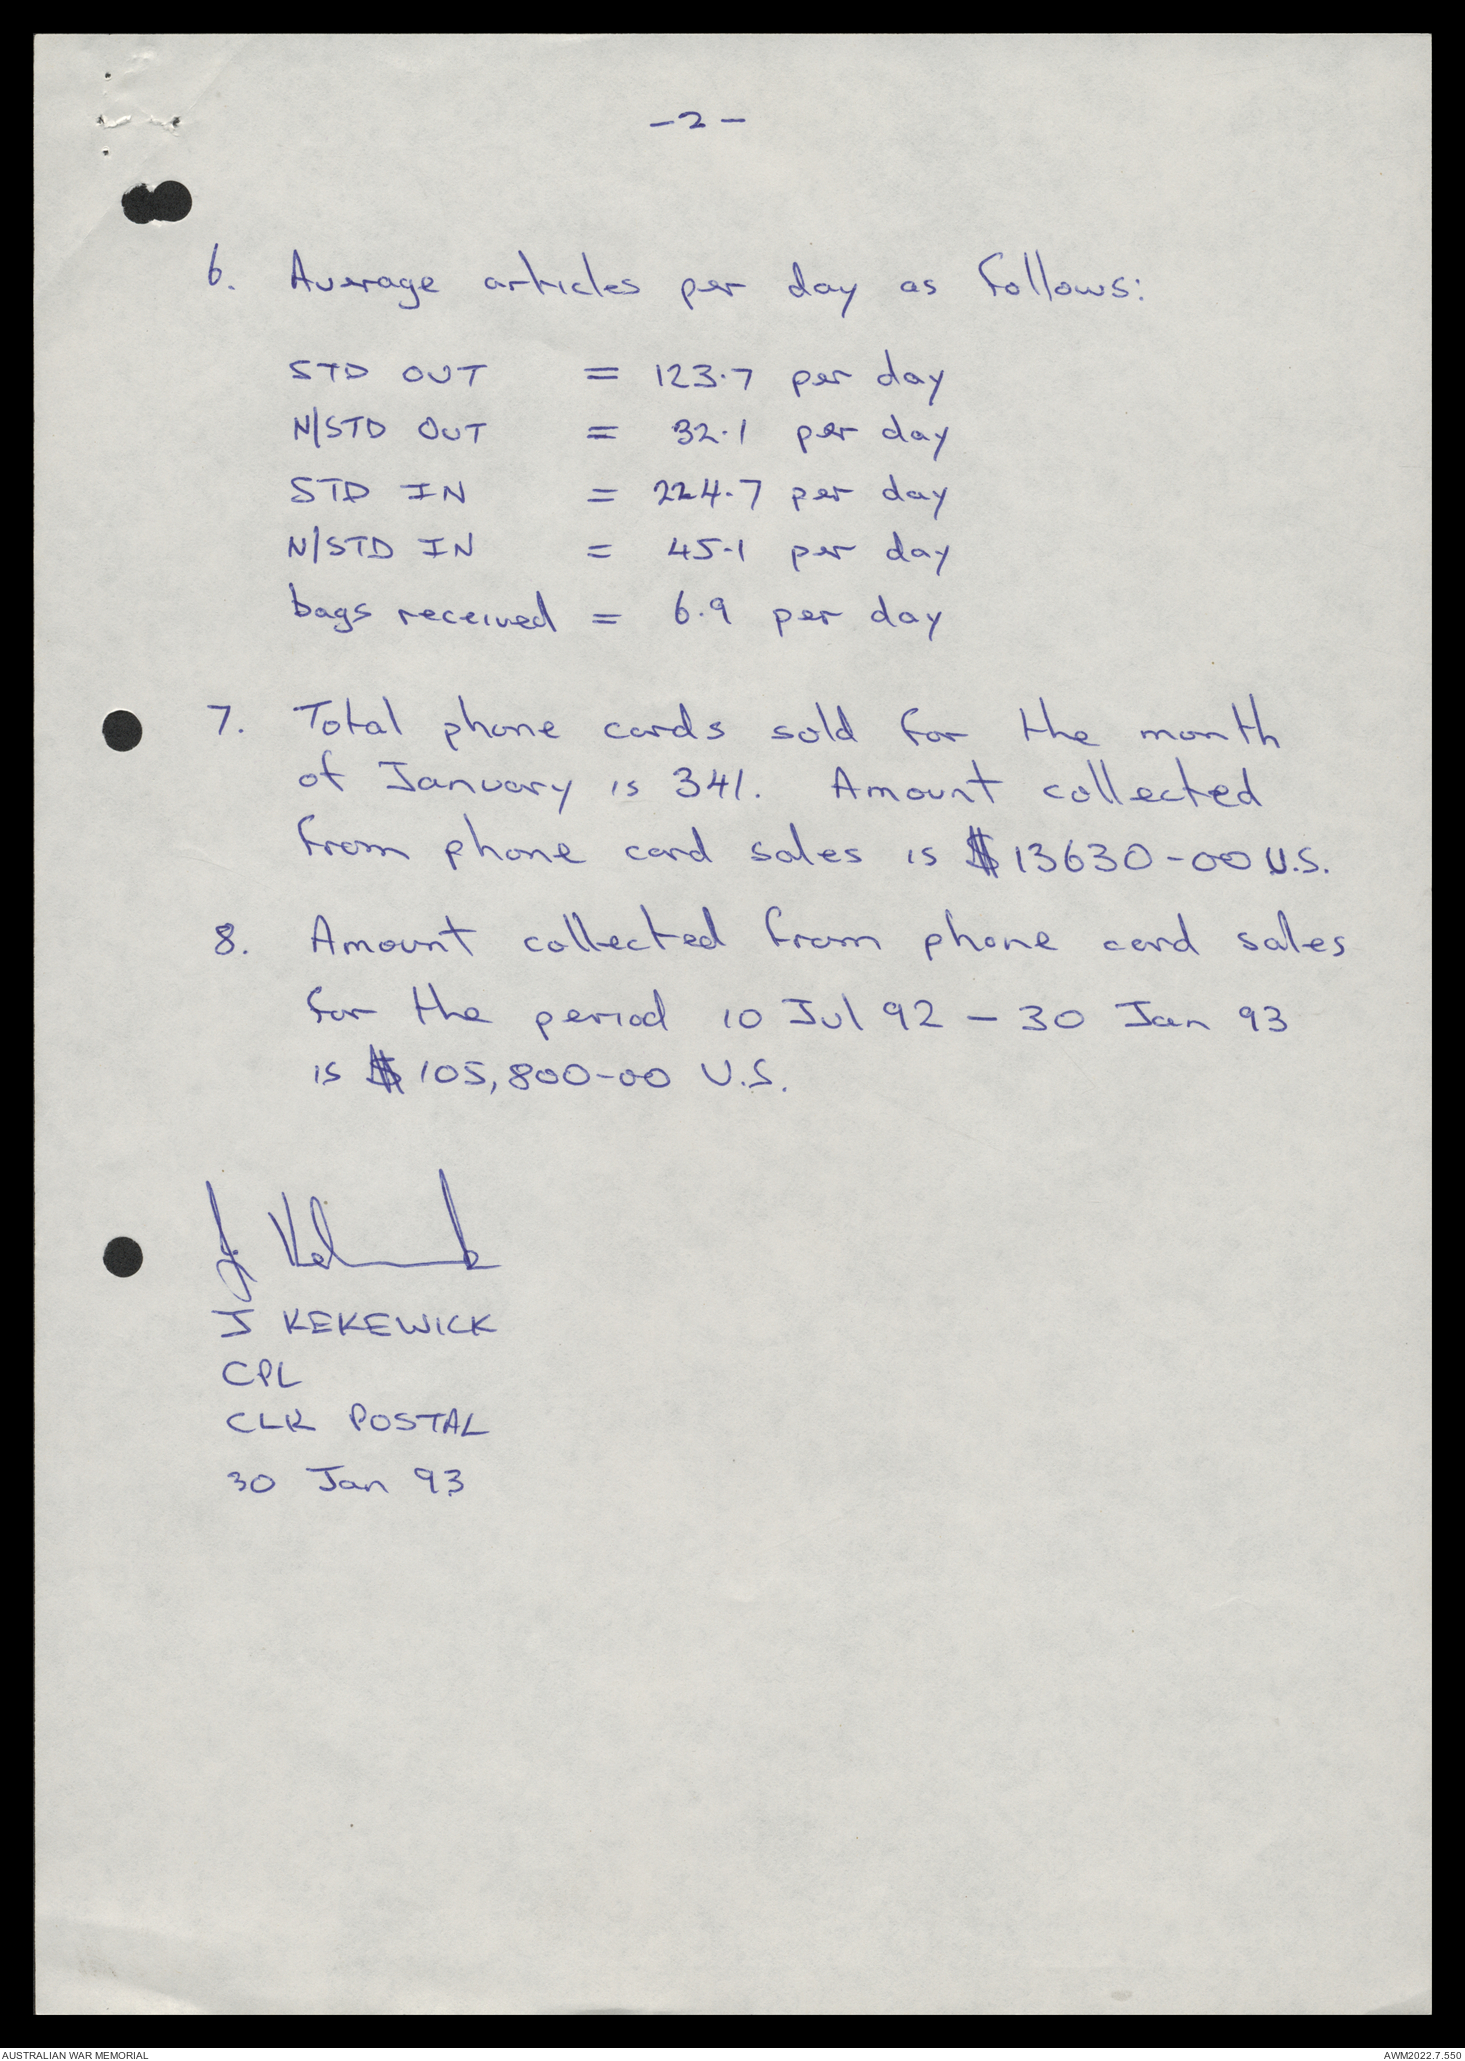 -2-
6. Average articles per day as follows:
STD OUT = 123.7 per day
N/STD OUT = 32.1 per day
STD IN = 224.7 per day
N/STD IN = 45.1 per day
bags received = 6.9 per day
7. Total phone cards sold for the month
of January is 341. Amount collected
from phone card sales is $13630-00 U.S.
8. Amount collected from phone card sales
for the period 10 Jul 92 - 30 Jan 93
is $105,800-00 U.S.
J KEKEWICK
CPL
CLK POSTAL
30 Jan 93
AUSTRALIAN WAR MEMORIAL
AWM2022.7.550